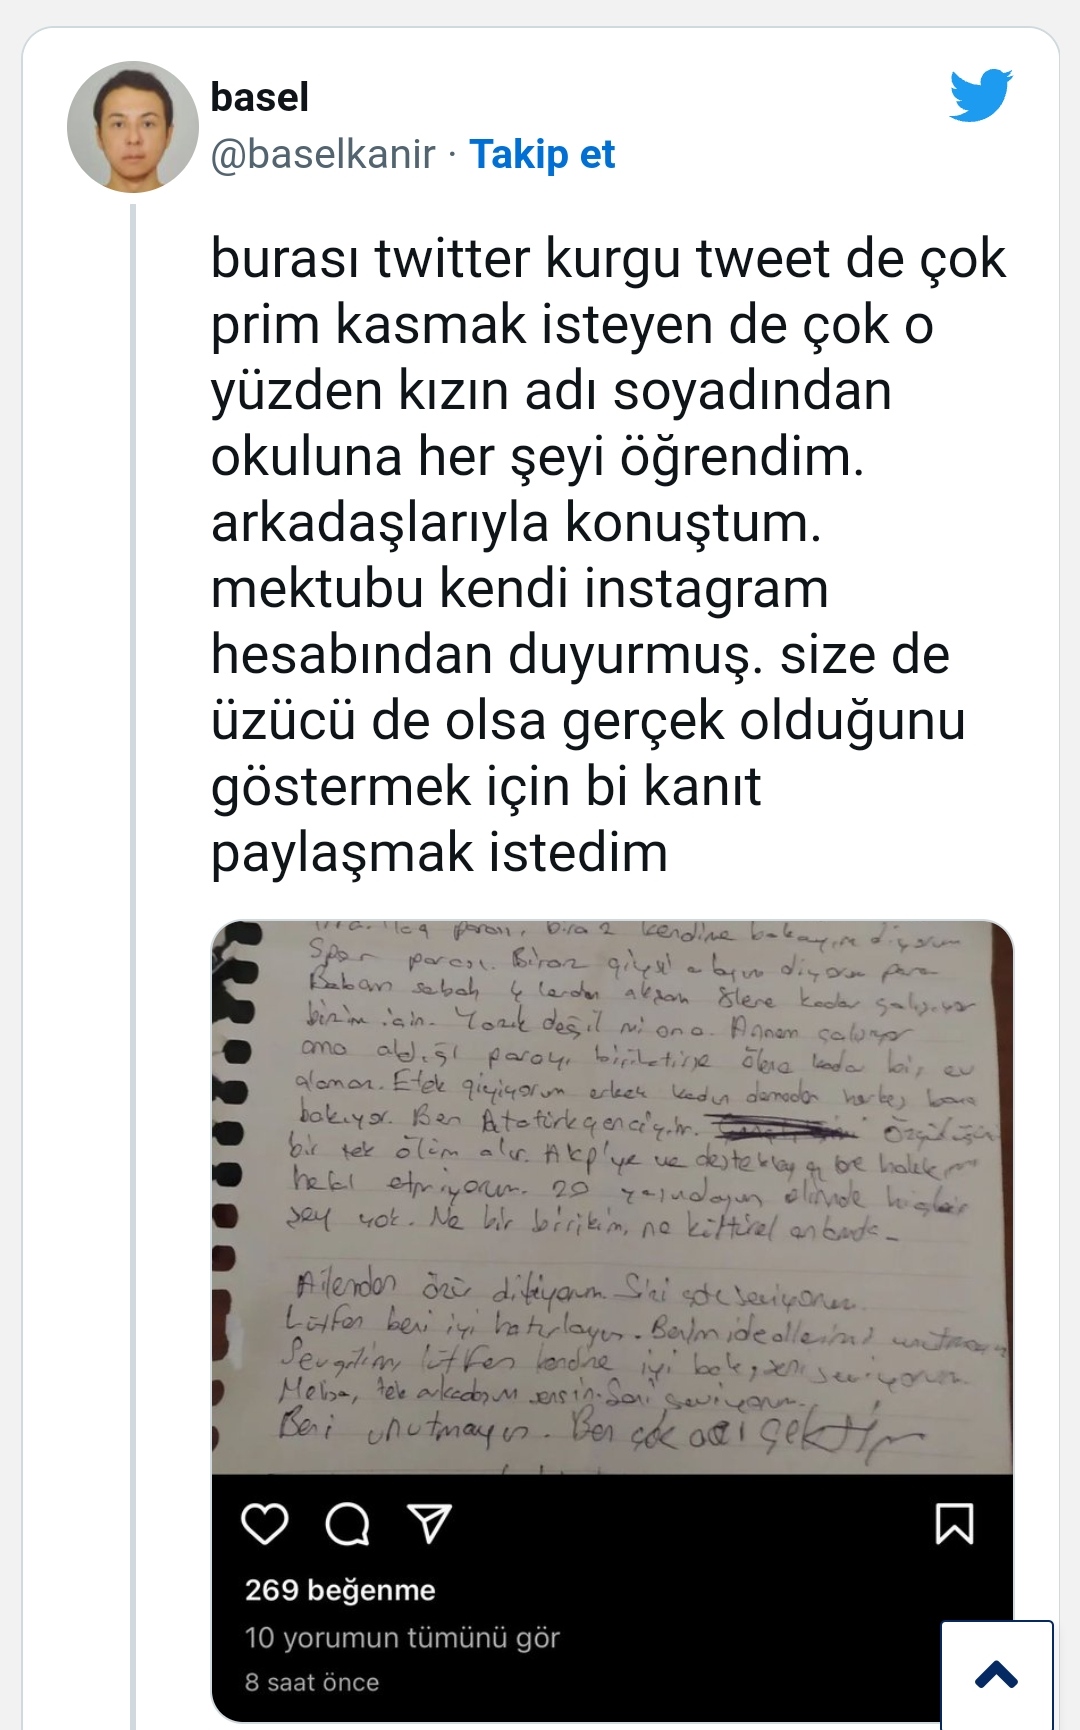 basel
@baselkanir · Takip et
burası twitter kurgu tweet de çok
prim kasmak isteyen de çok o
yüzden kızın adı soyadından
okuluna her şeyi öğrendim.
arkadaşlarıyla konuştum.
mektubu kendi instagram
hesabından duyurmuş. size de
üzücü de olsa gerçek olduğunu
göstermek için bi kanıt
paylaşmak istedim
biraz kendine bakayım diyorum
Spor parası. Biraz diyorum para
Babam sabah 4 lerden akşam 8lere kadar çalışıyor
bizim için. Yazık değil mi ona. Annem çalışıyor
ama aldığı parayı biriktirse ölene kadar bir ev
alamaz. Etek giyiyorum erkek kadın demeden herkes bana
bakıyor. Ben Atatürk genciyim.
bir tek ölüm alır. Akp'ye ve
20 yaşındayım elimde hiçbir
şey yok. Ne bir birikim, ne kültürel
Ailemden özür diliyorum. Sizi çok seviyorum.
Lütfen beni iyi hatırlayın. Benim ideallerimi
Sevgilim, lütfen kendine iyi bak, seni seviyorum.
tek arkadaşım sensin. Seni seviyorum.
Beni unutmayın. Ben çok acı çektim
269 beğenme
10 yorumun tümünü gör
8 saat önce